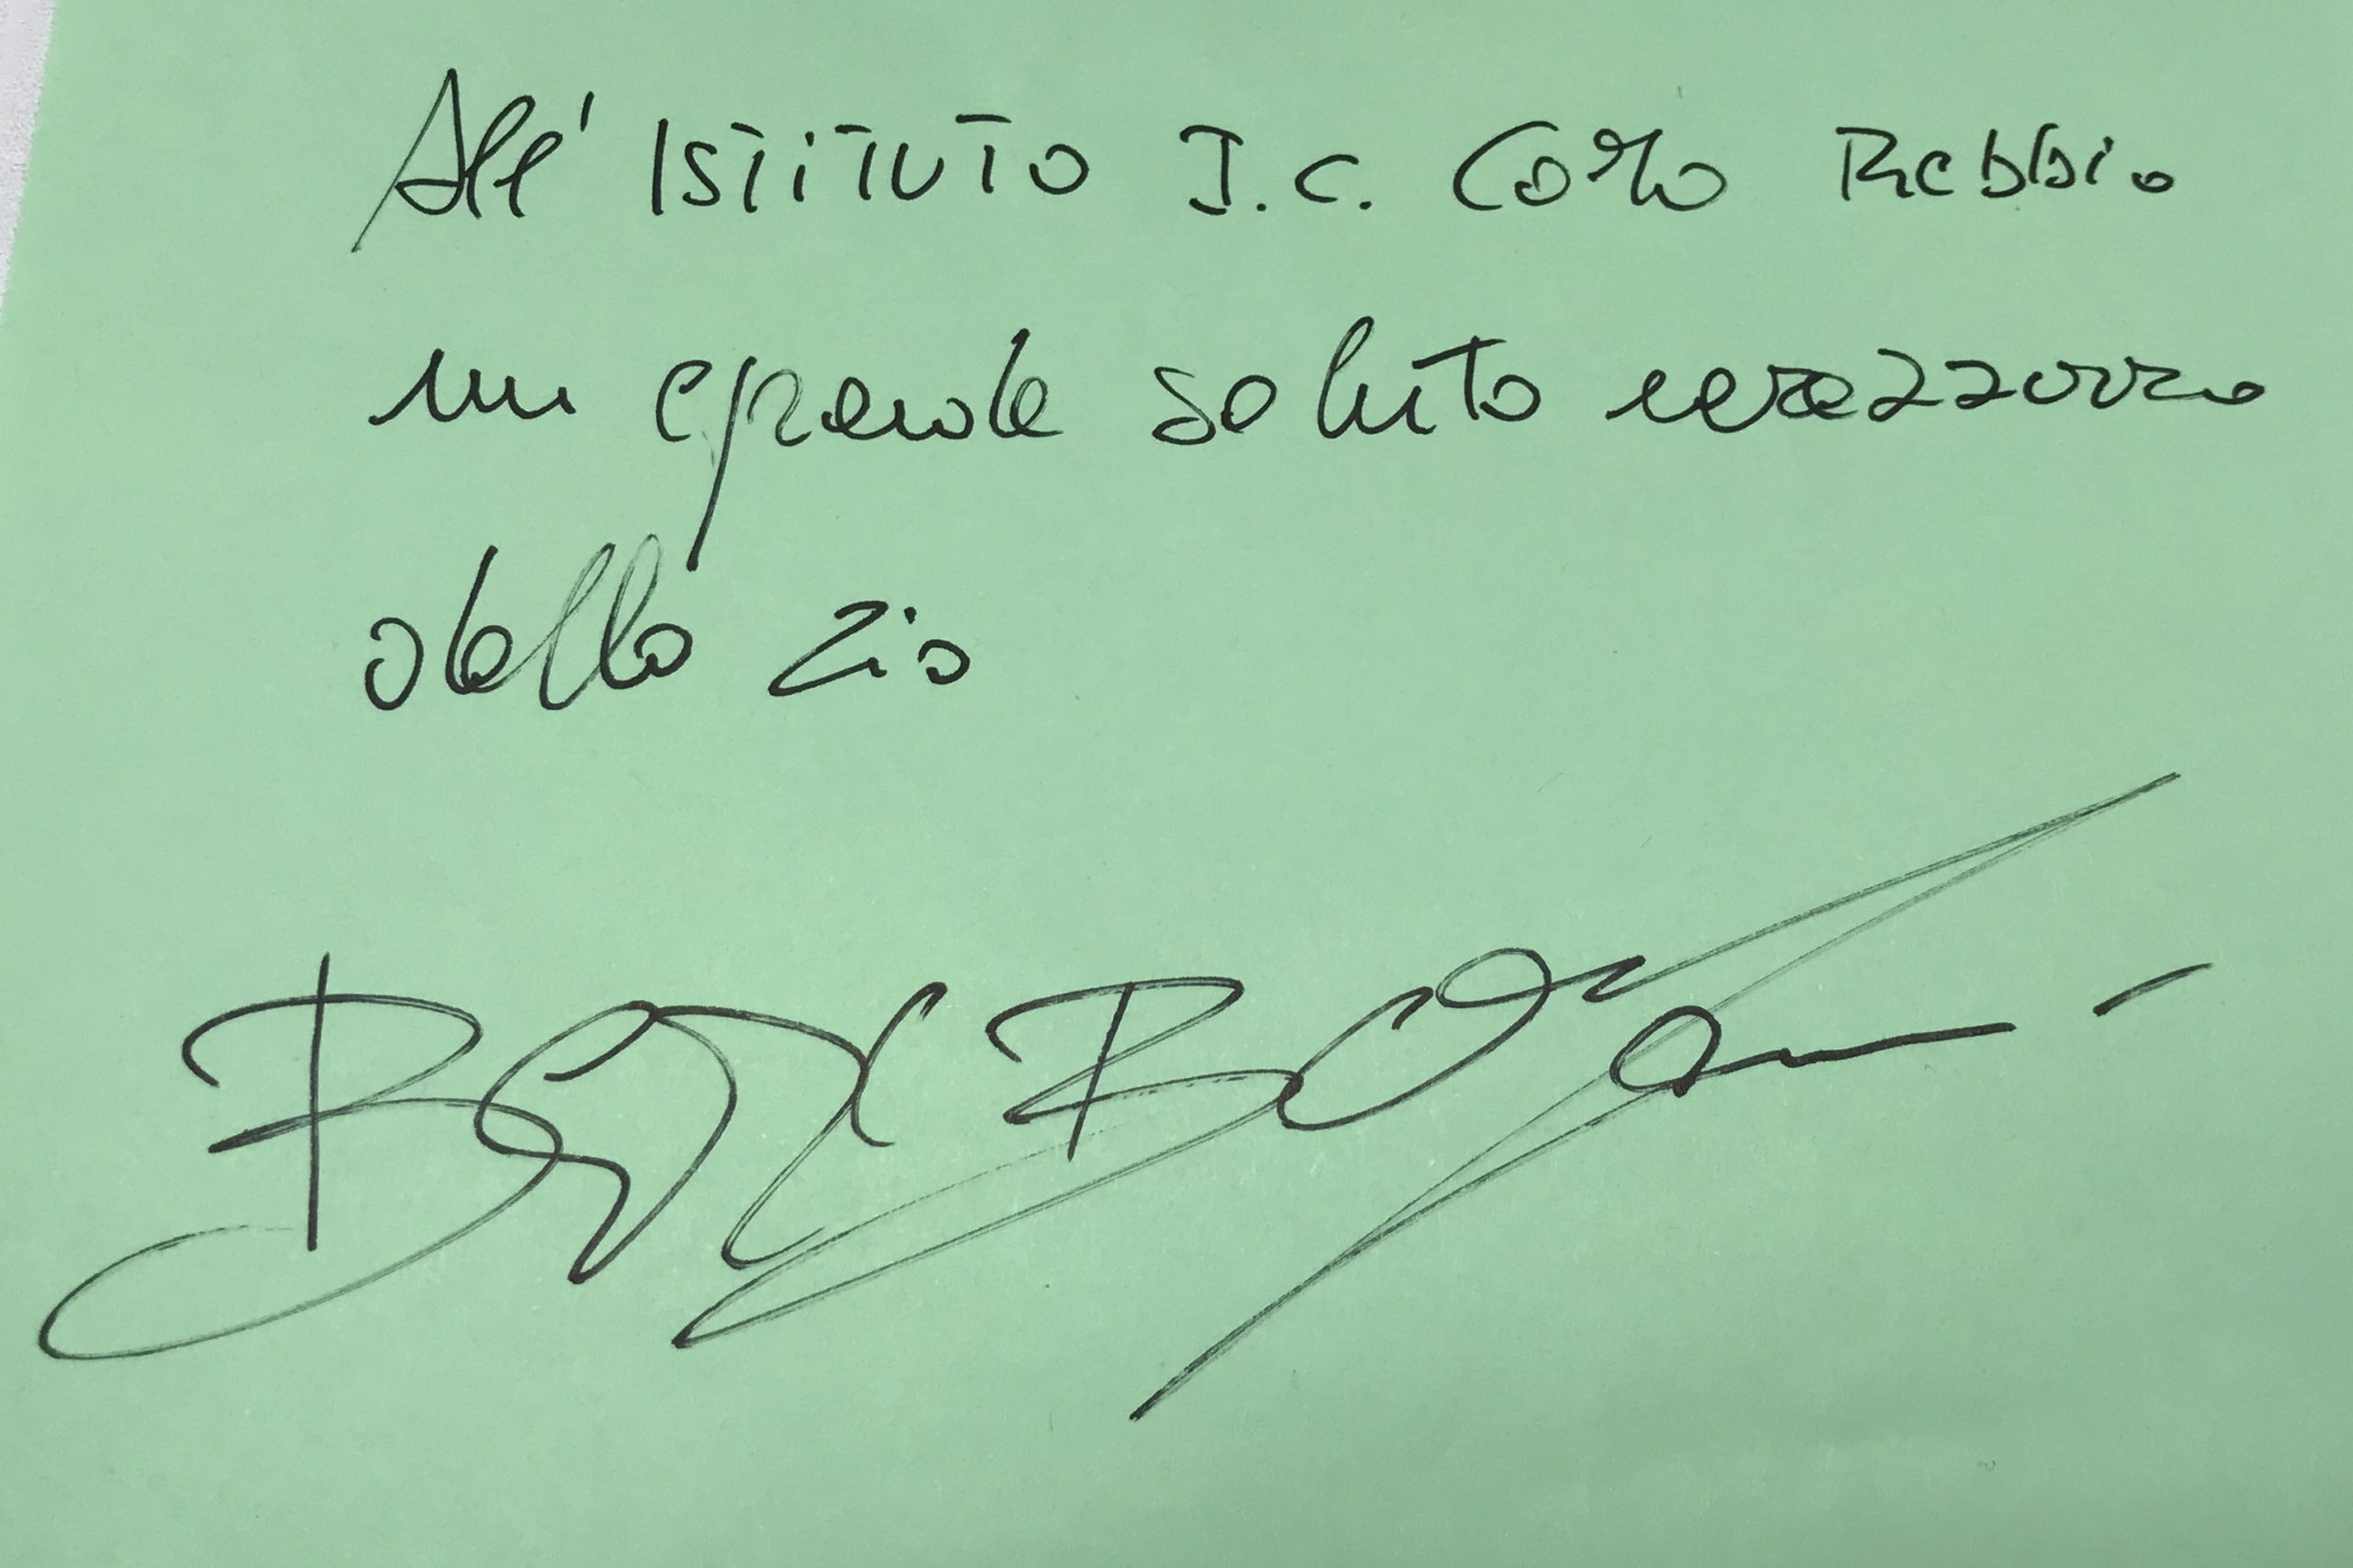 All' Istituto I.C. Como Rebbio
un grande saluto nerazzurro
dallo zio